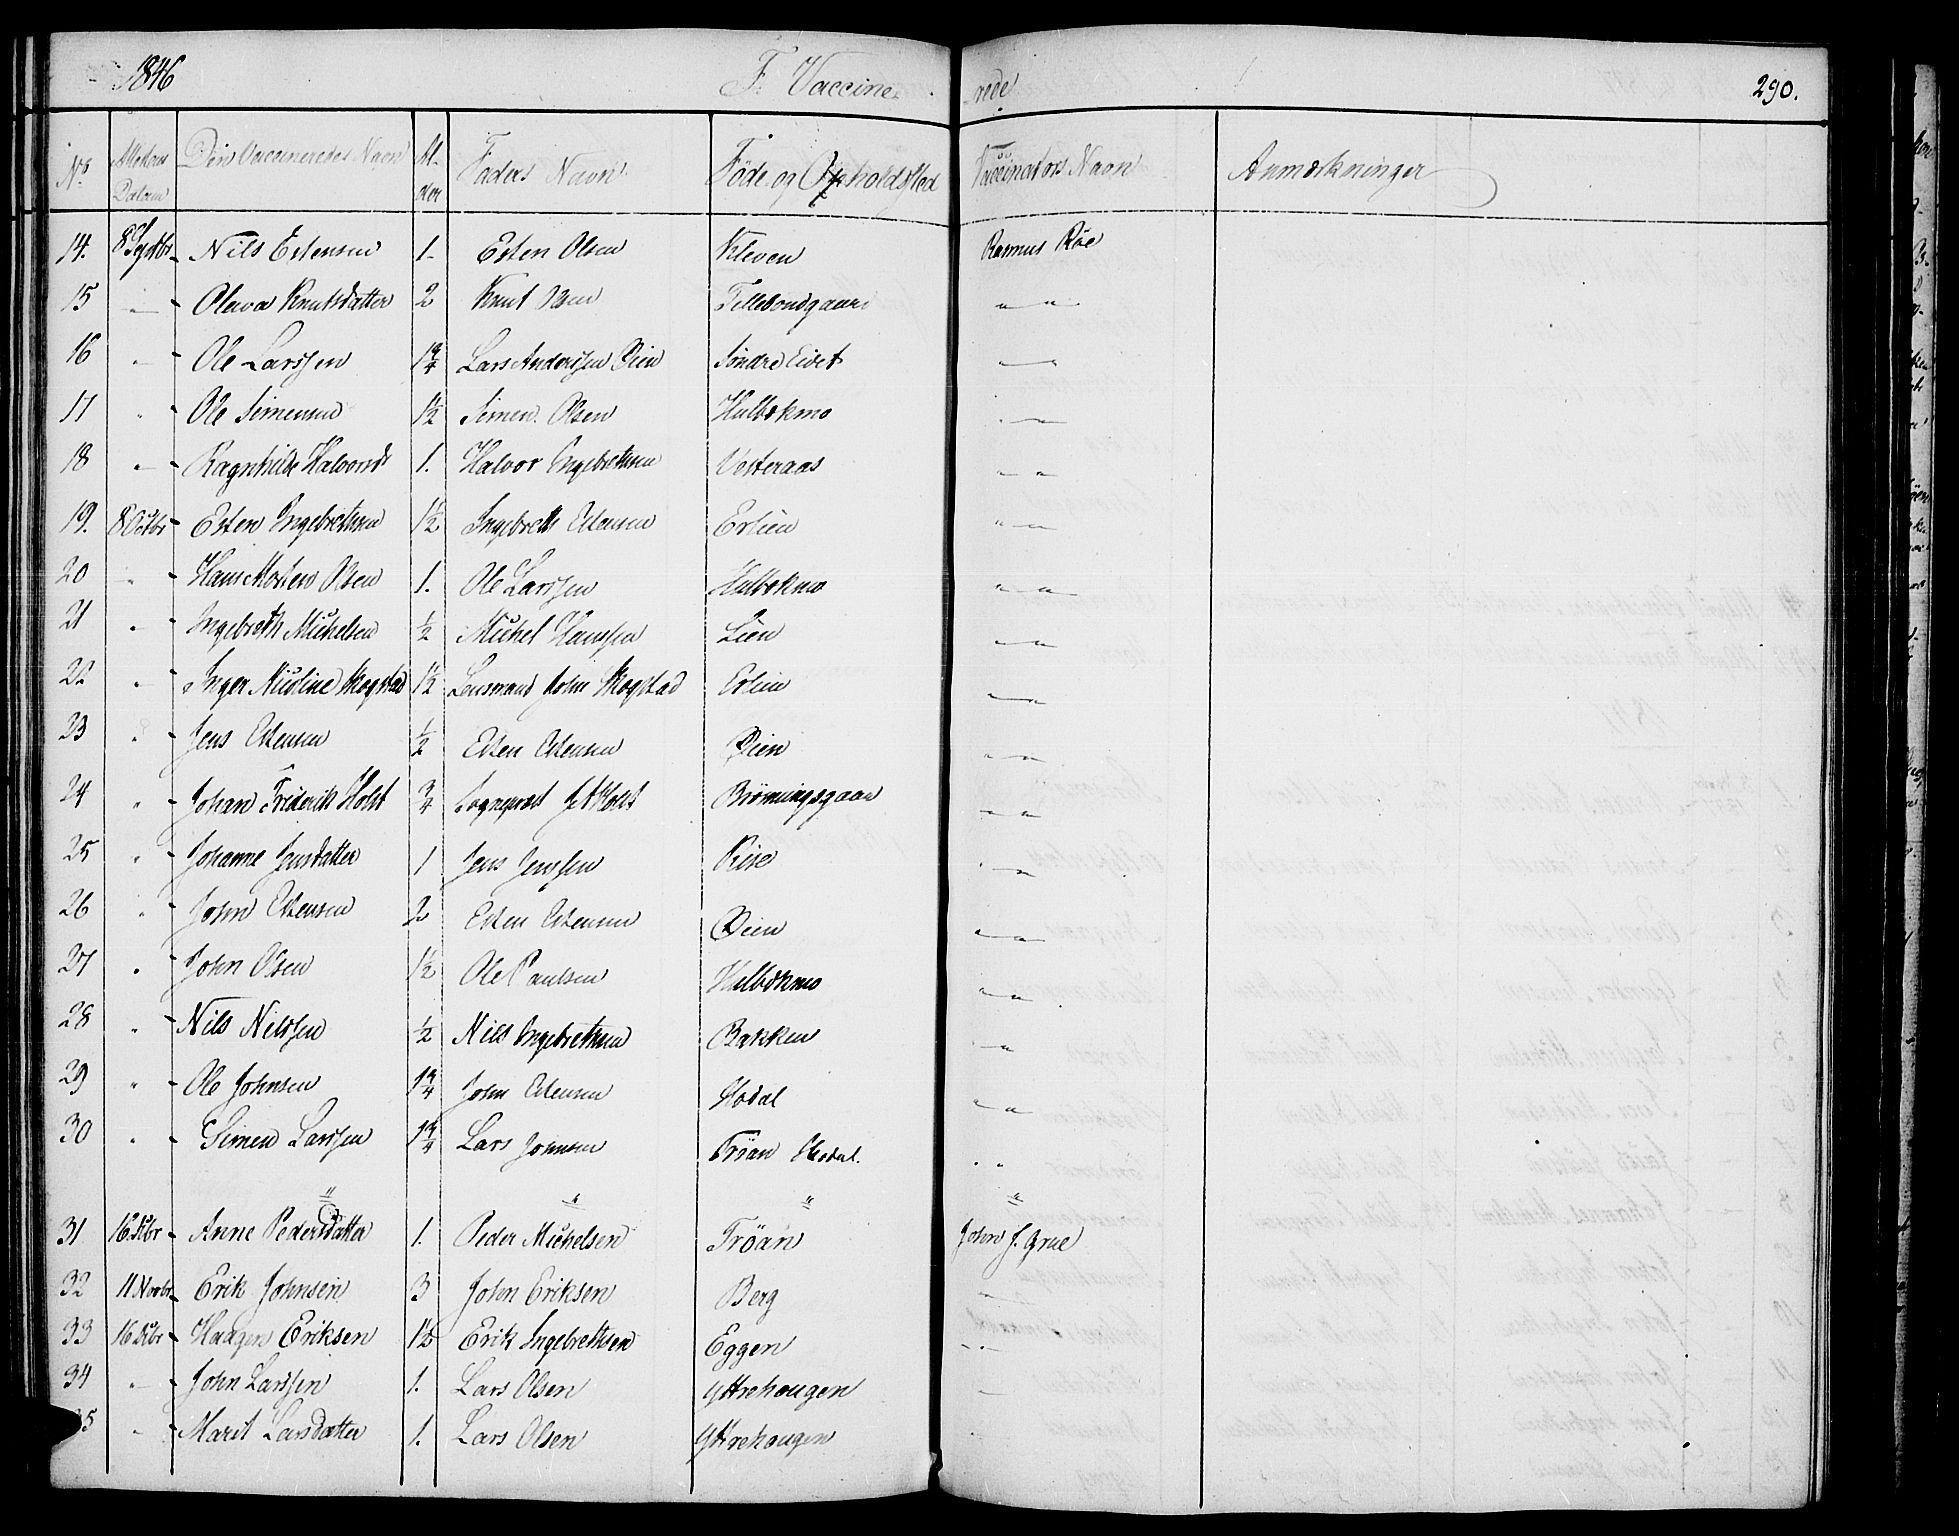 1846 F. Vaccine- rede 290.
No Attestens Datum Den Vaccineredes Navn Al- der Faders Navn Föde og Opholdssted Vaccinators Navn Anmærkninger
14. 8 Septbr Nils Estensen 1. Esten Olsen Kleven Rasmus Röe
15 " Olava Knutsdatter 2 Knut Olsen Tellebondgaard " "
16 " Ole Larssen 1 3/4 Lars Anderssen Öien Söndre Eidet "
17 " Ole Simensen 1 1/2 Simen Olsen Hulbækmo " "
18 " Ragnhild Halvorsd 1. Halvor Ingebrethsen Vesteraas " "
19. 8 Octbr Esten Ingebrethsen 1 1/2 Ingebreth Estensen Erlien " "
20 " Hans Morten Olsen 1. Ole Larssen Hulbekmo " "
21 " Ingebreth Mickelsen 1/2 Mickel Hanssen Lien " "
22 " Inger Nicoline Skogstad 1 1/2 Lensmand John Skogstad Erlien "
23 " Jens Estensen 1/2 Esten Estensen Öien " "
24 " Johan Friderik Holst 3/4 Sogneprest Holst Brömmingsgaard " "
25 " Johanne Jensdatter 1 Jens Jenssen Rise " "
26 " John Estensen 2 Esten Estensen Öien " "
27 " John Olsen 1 1/2 Ole Paulsen Hulbækmo " "
28 " Nils Nilssen 1/2 Nils Ingebrethsen Bakken " "
29 " Ole Johnsen 1 3/4 John Estensen Hodal " "
30 " Simen Larssen 1 3/4 Lars Johnsen Tröan Hodal. " "
" " " "
31 16 Octbr Anne Pedersdatter 1. Peder Mickelsen Tröan John J. Grue
32 11 Novbr Erik Johnsen 3 John Eriksen Berg "
33 16 Octbr Haagen Eriksen 1 1/2 Erik Ingebrethsen Eggen " "
34 " John Larssen 1. Lars Olsen Yttrehaugen "
35 " Marit Larsdatter 1. Lars Olsen Yttrehaugen "